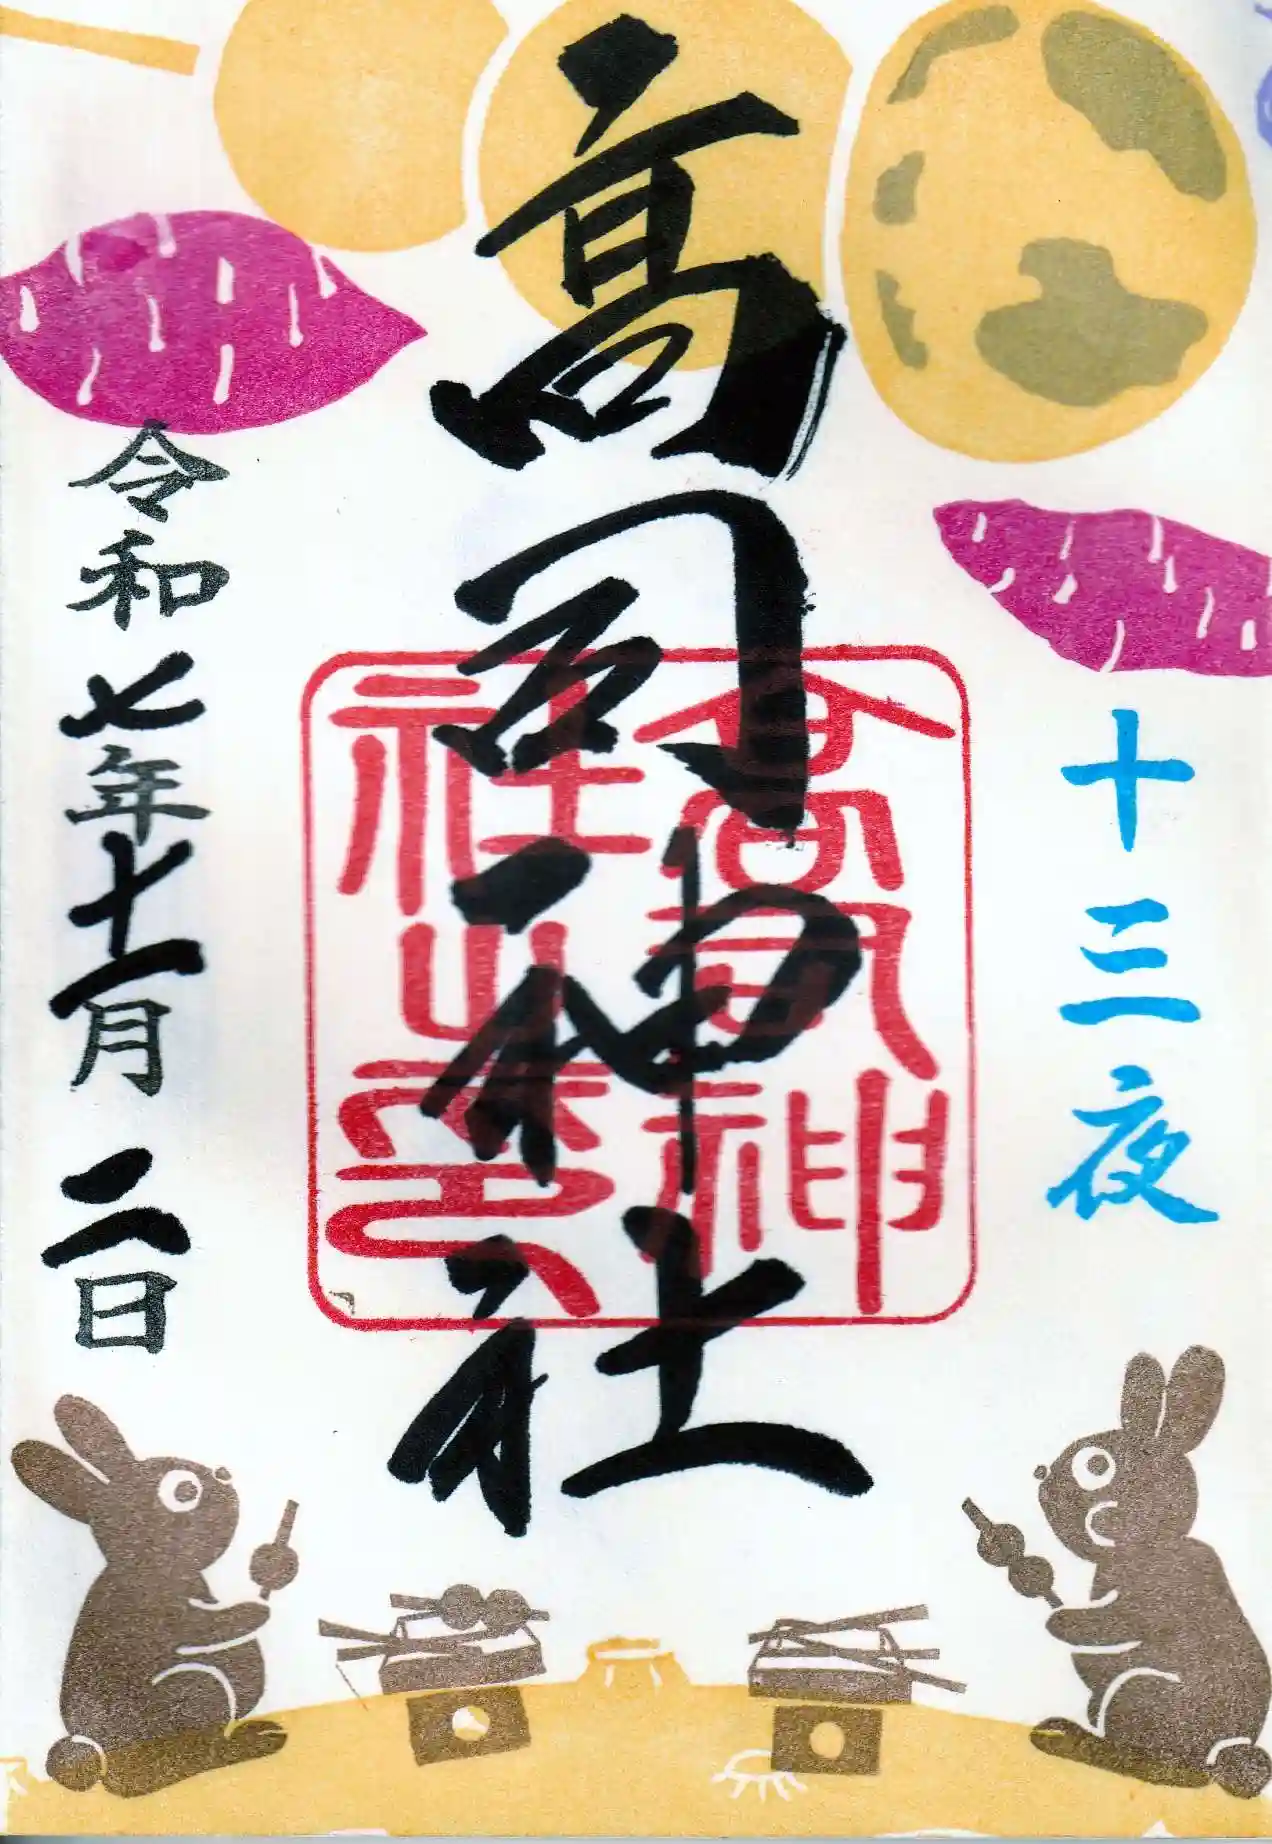 十三夜
髙司神社
高司神
社之印
令和七年十一月二日